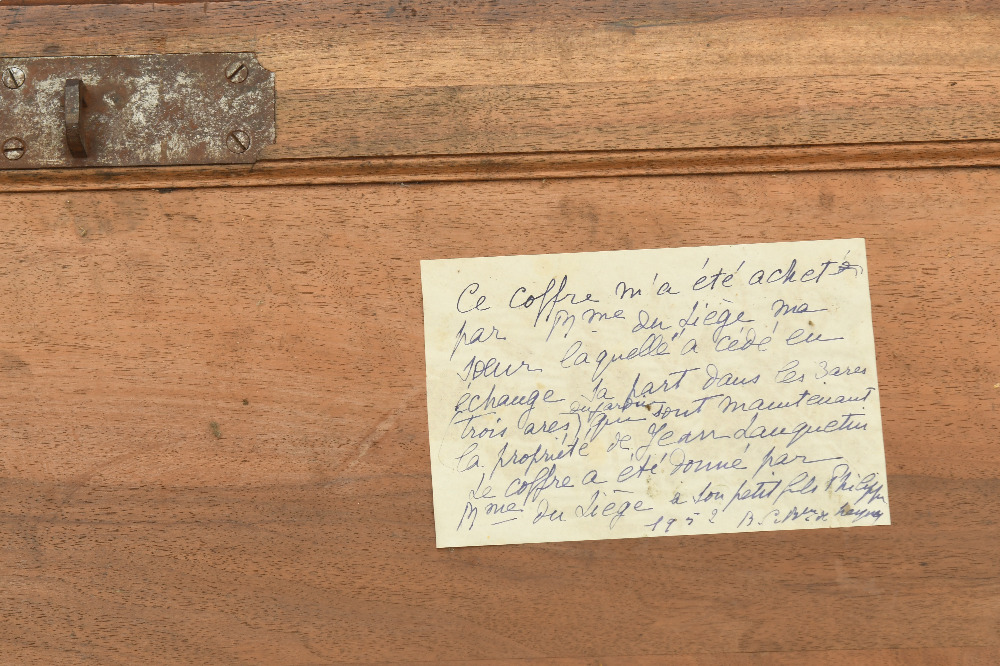 Ce coffre m'a été acheté
par Mme du Liège ma
soeur laquelle a cédé en
échange sa part dans les 3 ares
trois ares du jardin qui sont maintenant
la propriété de Jean Lauquetin
Le coffre a été donné par
Mme du Liège à son petit fils Philippe
1952